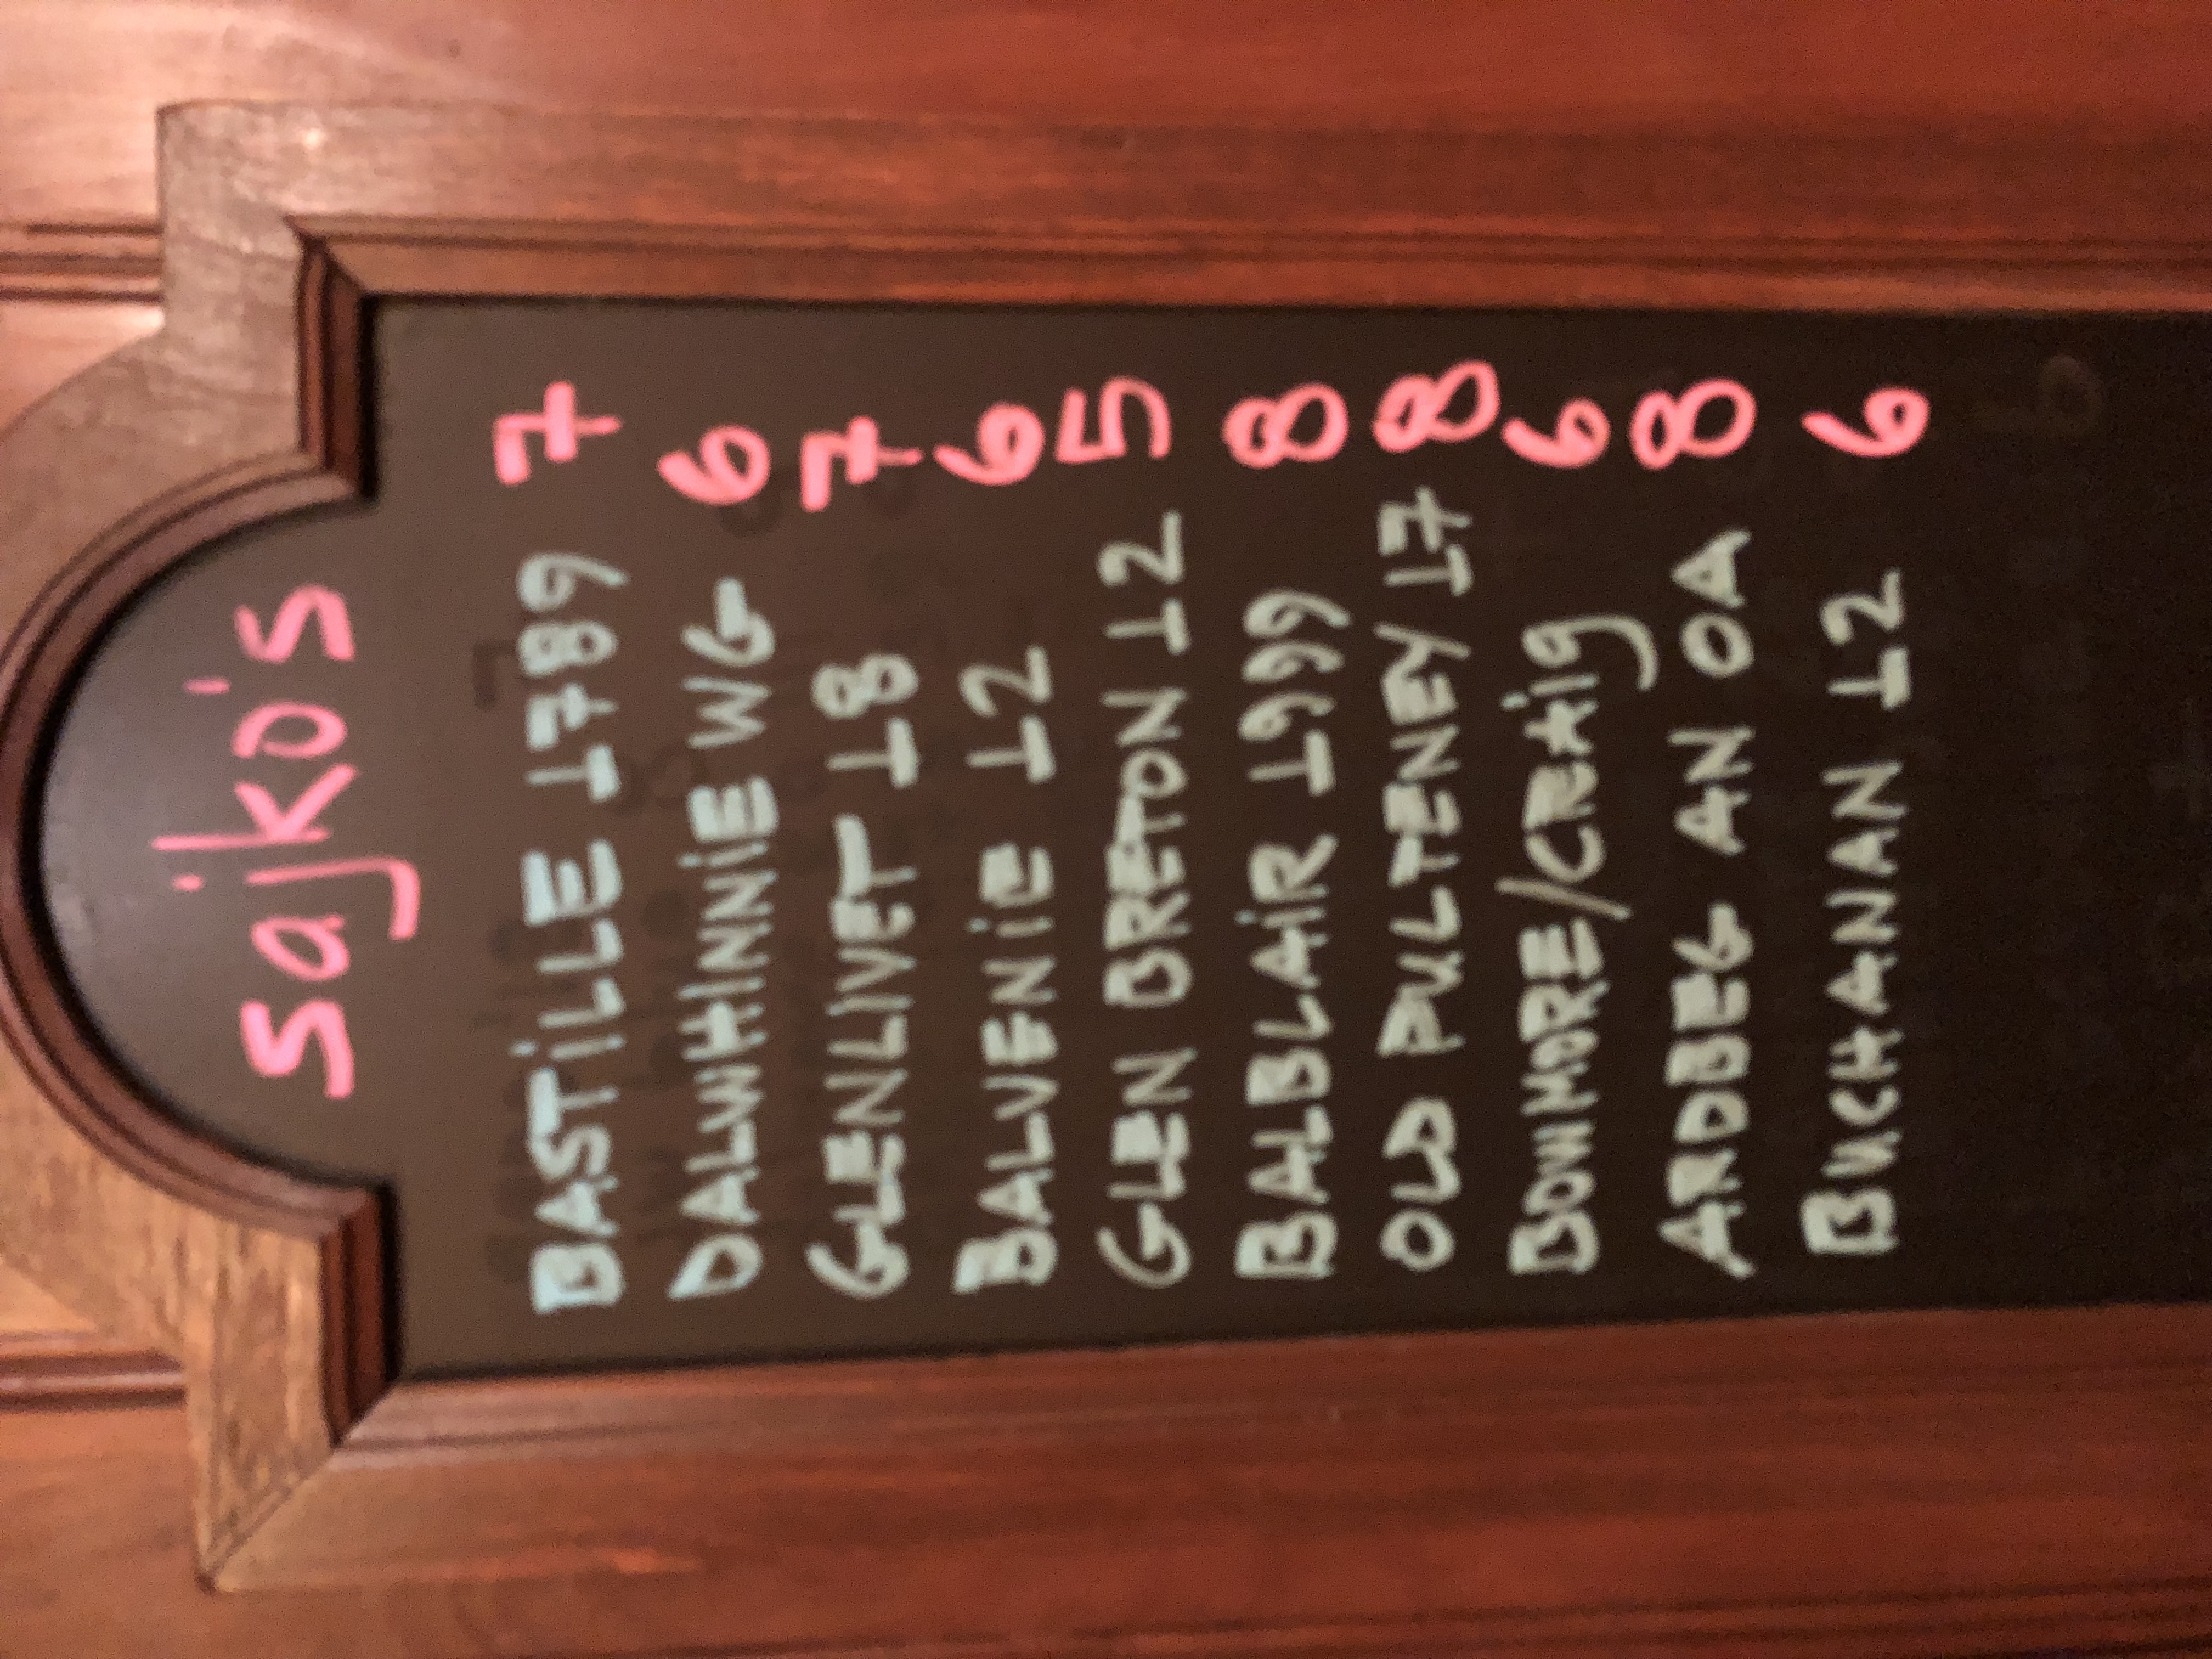 sajko's
BASTiLLE 1789 7
DALWHINNiE WG 6
GLENLIVET 18 7
BALVENiE 12 6
GLEN BRETON 12 5
BALBLAiR 1999 8
OLD PULTENEY 17 8
BOWMORE/CRAig 6
ARDBEG AN OA 8
BUCHANAN 12 6